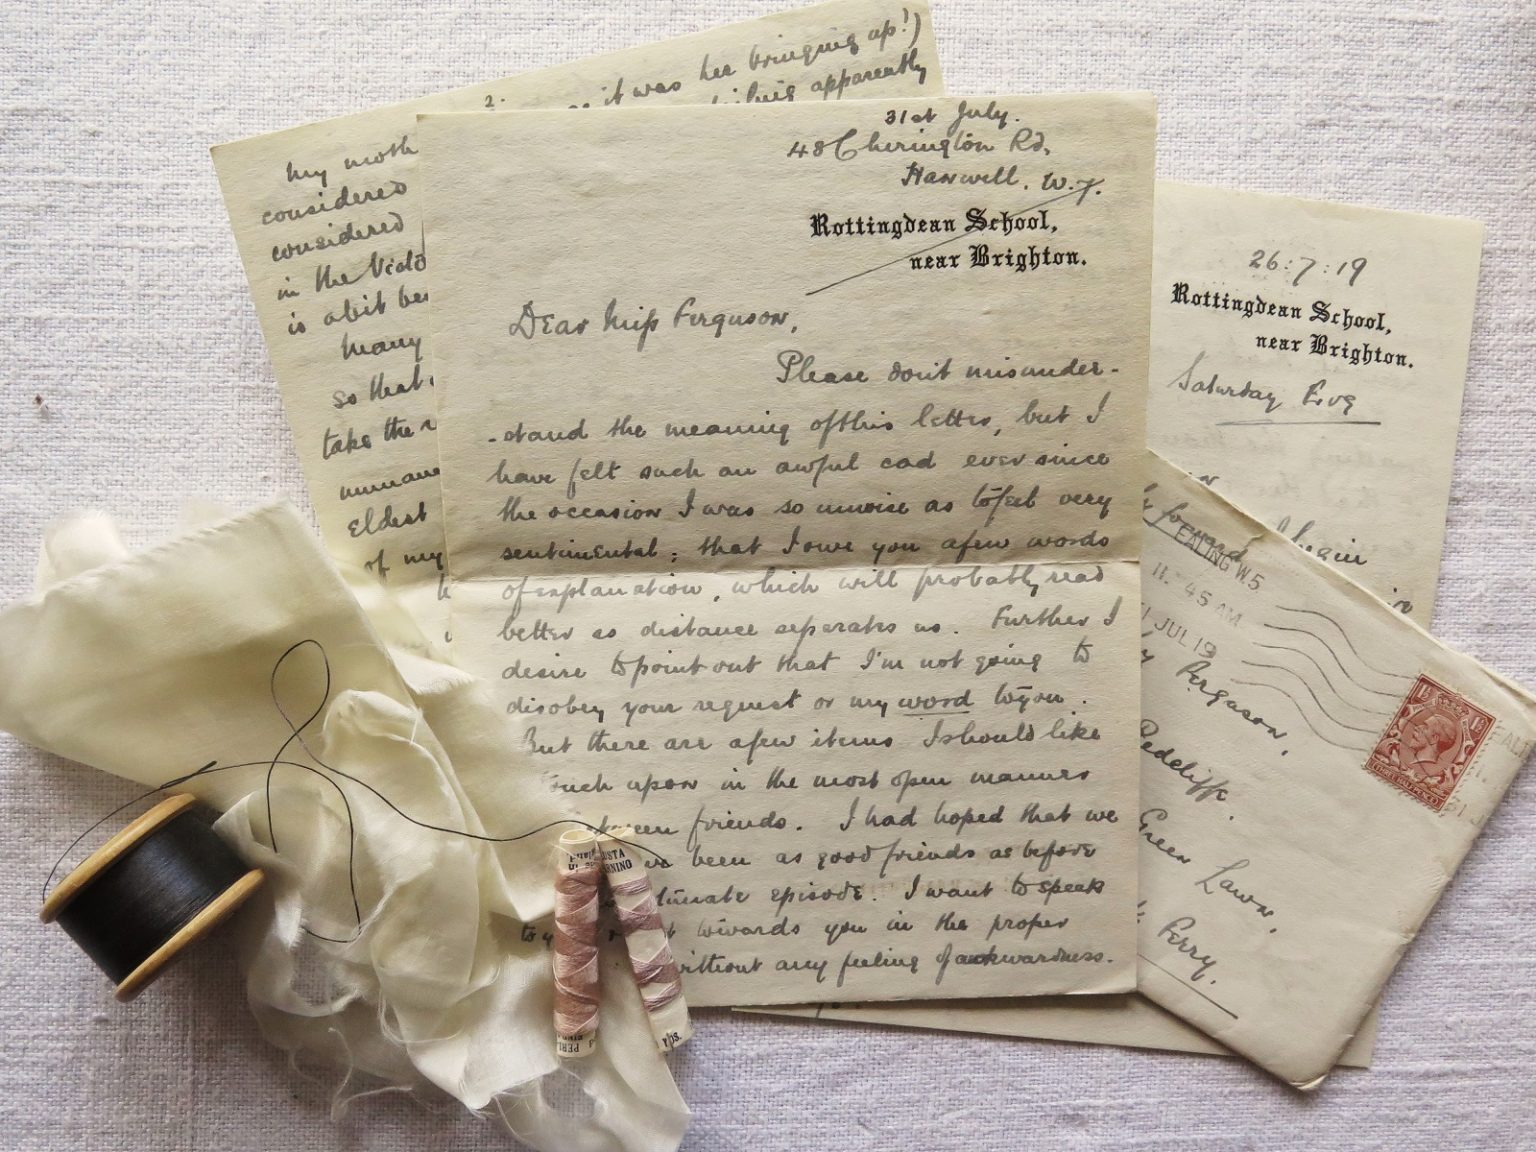 2.
it was her bringing up!)
apparently
My moth
considered
considered
in the
is a bit be
Many
so that
take the
Eldest
of my
31st July.
48 Cherington Rd,
Hanwell. W.7.
Rottingdean School,
near Brighton.
Dear Miss Ferguson,
Please don't misunder-
-stand the meaning of this letter, but I
have felt such an awful cad ever since
the occasion I was so unwise as to feel very
sentimental; that I owe you a few words
of explanation, which will probably read
better as distance seperates us. Further I
desire to point out that I'm not going to
disobey your request or my word to you.
But there are a few items I should like
uch upon in the most open manner
tween friends. I had hoped that we
been as good friends as before
tunate episode. I want to speak
to y towards you in the proper
without any feeling of awkwardness.
26:7:19
Rottingdean School,
near Brighton.
Saturday Evg
again
EALING W.5
11.45 AM
31 JUL 19
Ferguson,
Redcliffe.
Green Lawn,
Ferry.
1½ 1½
THREE HALFPENCE